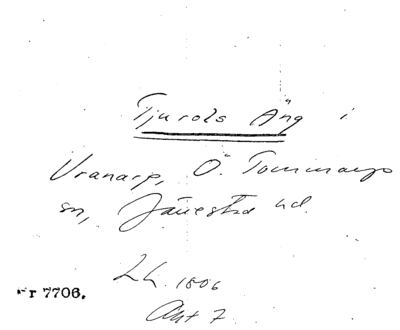 Tjurols Äng i
Vranarp, Ö. Tommarps
sn, Järrestad hd.
LH. 1806
Akt 7
nr 7706.